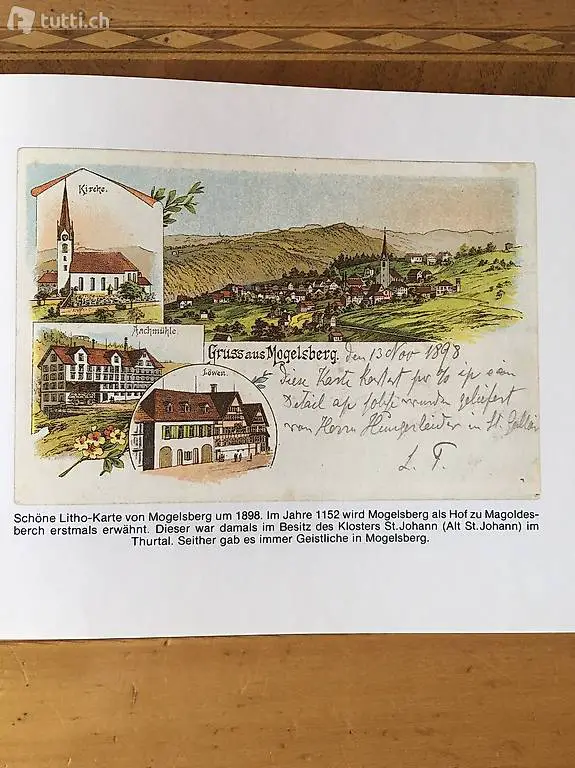 tutti.ch
Kirche.
Aachmühle.
Löwen.
Gruss aus Mogelsberg.
den 13 Nov 1898
Diese Karte kostet per % ip ein
Detail ap solche wurden geliefert
von Herrn Hungerbühler in St. Gallen
L. T.
Schöne Litho-Karte von Mogelsberg um 1898. Im Jahre 1152 wird Mogelsberg als Hof zu Magoldes-
berch erstmals erwähnt. Dieser war damals im Besitz des Klosters St.Johann (Alt St.Johann) im
Thurtal. Seither gab es immer Geistliche in Mogelsberg.